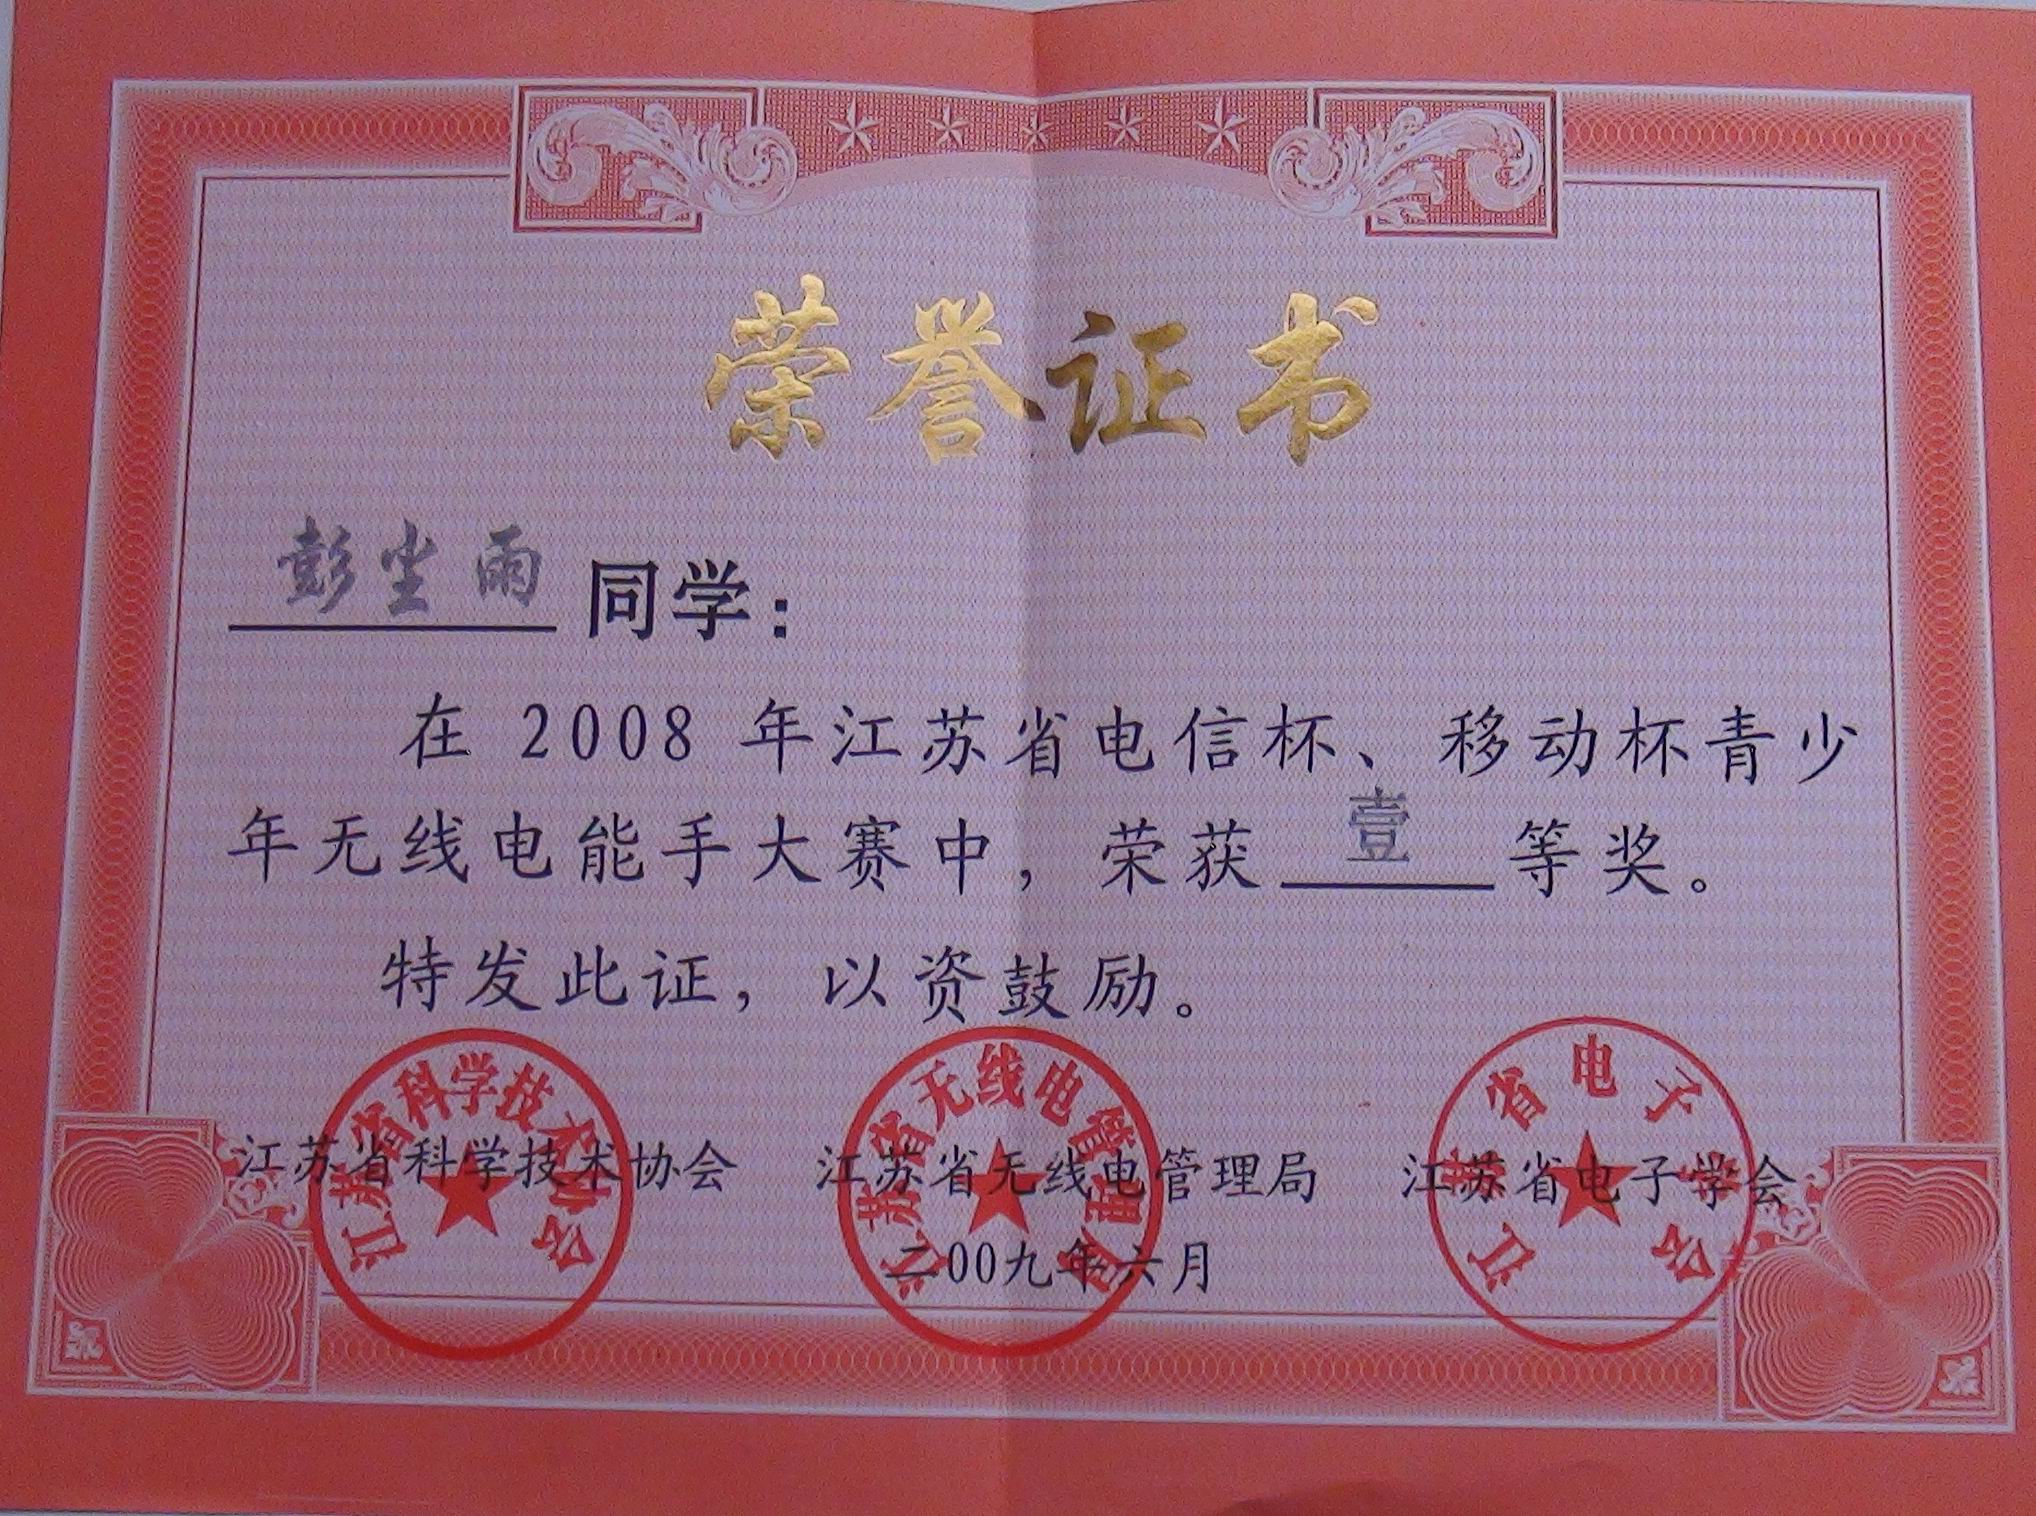 荣誉证书
彭尘雨 同学：
在 2008 年江苏省电信杯、移动杯青少
年无线电能手大赛中，荣获 壹 等奖。
特发此证，以资鼓励。
江苏省科学技术协会 江苏省无线电管理局 江苏省电子学会
二00九年六月
江苏省科学技术协会
江苏省无线电管理局
江苏省电子学会